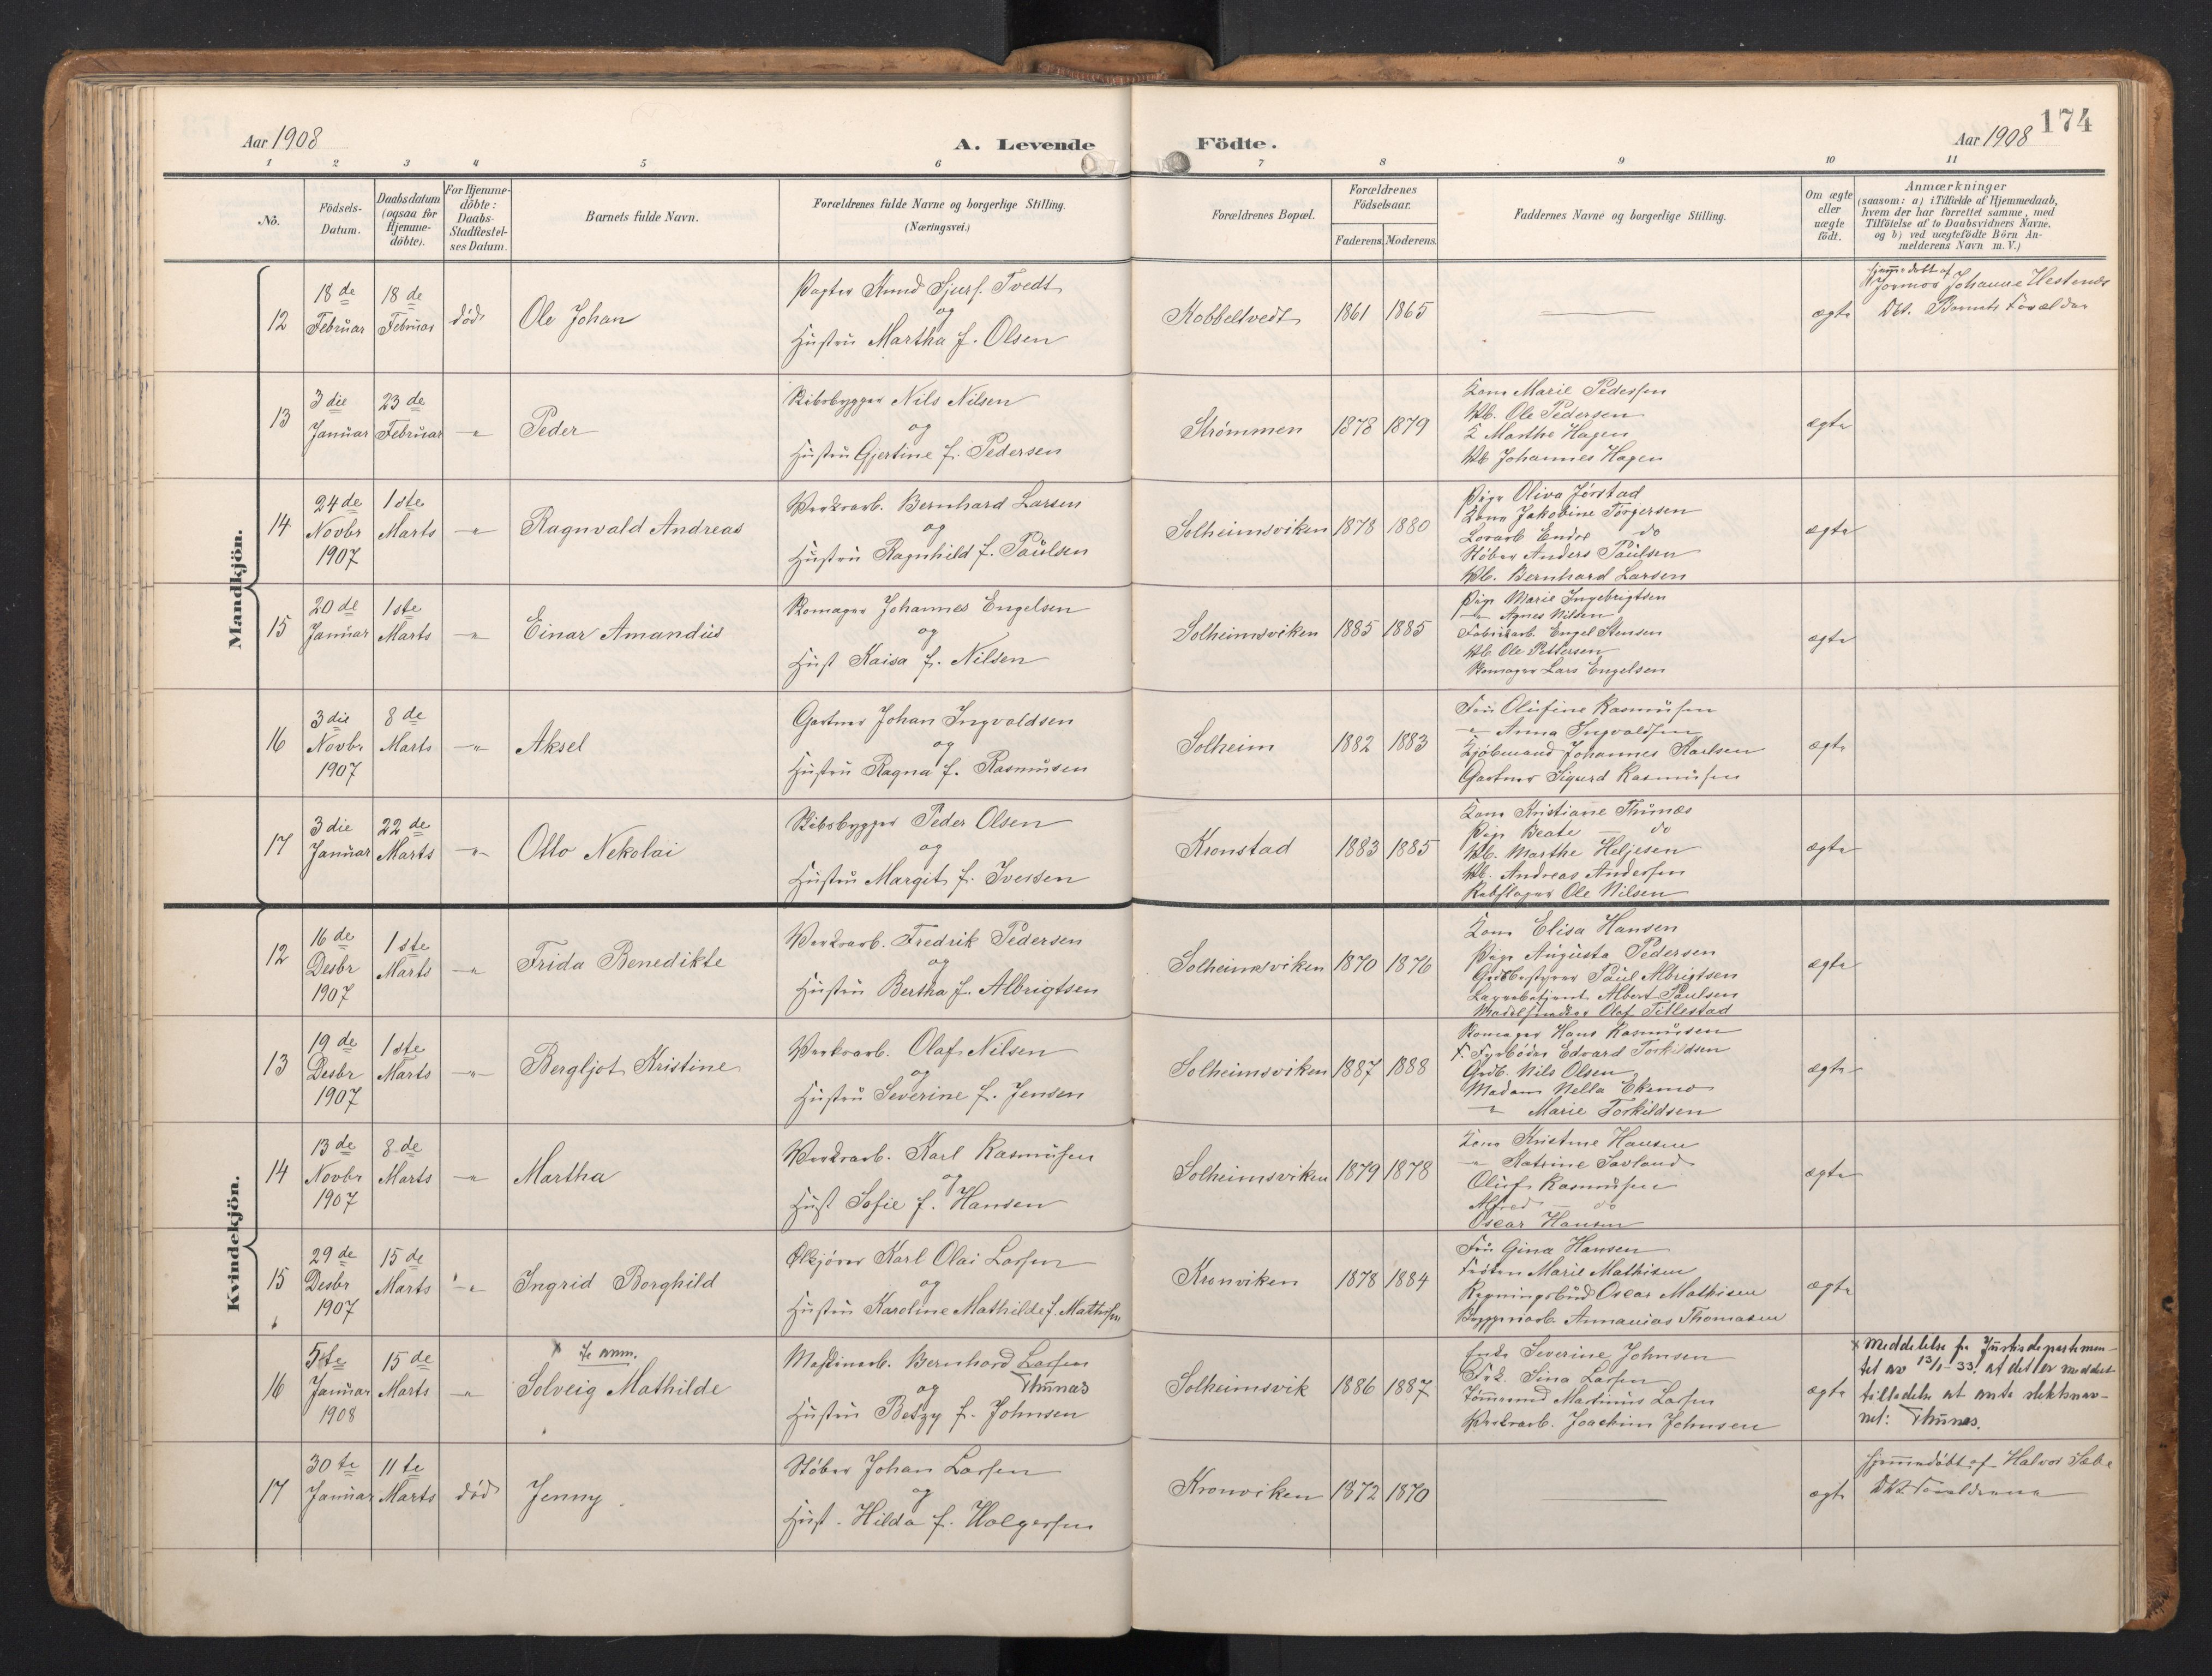 Aar 1908
A. Levende
Födte.
Aar 1908
174
1 2 3 4 5 6 7 8 9 10 11
No.
Födsels-
Datum.
Daabsdatum
(ogsaa for
Hjemme-
döbte).
For Hjemme-
döbte:
Daabs-
Stadfæstel-
ses Datum.
Barnets fulde Navn.
Forældrenes fulde Navne og borgerlige Stilling.
(Næringsvei.)
Forældrenes Bopæl.
Forældrenes
Födselsaar.
Faderens.
Moderens.
Faddernes Navne og borgerlige Stilling.
Om ægte
eller
uægte
födt.
Anmærkninger
(saasom: a) i Tilfælde af Hjemmedaab,
hvem der har forrettet samme, med
Tilföielse af to Daabsvidners Navne,
og b) ved uægtefödte Börn An-
melderens Navn m. V.)
Mandkjön.
12
18 de
Februar
18 de
Februar
død
Ole Johan
Sjurs. Tvedt
og
Hustru Martha f. Olsen
Kobbeltvedt
1861
1865
ægte
Hjemmedøbt af
Jormor Johanne Hestenes
Dbt. Barnets Forældre
13
3 die
Januar
23 de
Februar
-"-
Peder
Skibsbygger Nils Nilsen
og
Hustru Gjertine f. Pedersen
Strømmen
1878
1879
Kone Marie Pedersen
Ole Pedersen
K Marthe Hagen
Johannes Hagen
ægte
14
24 de
Novbr
1907
1ste
Marts
-"-
Ragnvald Andreas
Verksarb. Bernhard Larsen
og
Hustru Ragnhild f. Paulsen
Solheimsviken
1878
1880
Pige Oliva Jørstad
Kone Jakobine Torgersen
Endre do
Støber Anders Paulsen
Bernhard Larsen
ægte
15
20 de
Januar
1ste
Marts
-"-
Einar Amandus
Skomager Johannes Engelsen
og
Hust Kaisa f. Nilsen
Solheimsviken
1885
1885
Pige Marie Ingebrigtsen
-"- Agnes Nilsen
Fabrikarb. Engel Stensen
Ole Pettersen
Skomager Lars Engelsen
ægte
16
3 die
Novbr
1907
8 de
Marts
-"-
Aksel
Gartner Johan Ingvaldsen
og
Hustru Ragna f. Rasmussen
Solheim
1882
1883
Fru Olufine Rasmussen
-"- Anna Ingvaldsen
Kjøbmand Johannes Karlsen
Gartner Sigurd Rasmussen
ægte
17
3 die
Januar
22 de
Marts
-"-
Otto Nekolai
Skibsbygger Peder Olsen
og
Hustru Margit f. Iversen
Kronstad
1883
1885
Kone Kristiane Thunæs
Pige Beate — do
Marthe Heljesen
Andreas Andersen
Rebslager Ole Nilsen
ægte
Kvindekjön.
12
16 de
Desbr
1907
1ste
Marts
-"-
Frida Benedikte
Verksarb. Fredrik Pedersen
og
Hustru Bertha f. Albrigtsen
Solheimsviken
1870
1876
Kone Elisa Hansen
Pige Augusta Pedersen
Paul Albrigtsen
Lagerbetjent Albert Paulsen
Modelsnedker Olaf Titlestad
ægte
13
19 de
Desbr
1907
1ste
Marts
-"-
Bergljot Kristine
Verksarb. Olaf Nilsen
og
Hustru Severine f. Jensen
Solheimsviken
1887
1888
Skomager Hans Rasmussen
F. Fyrbøder Edvard Torkildsen
Nils Olsen
Madam Nella Ekemo
-"- Marie Torkildsen
ægte
14
13 de
Novbr
1907
8 de
Marts
-"-
Martha
Verksarb. Karl Rasmussen
og
Hust Sofie f. Hansen
Solheimsviken
1879
1878
Kone Kristine Hansen
-"- Katrine Savland
Oluf Rasmussen
Alfred — do
Oscar Hansen
ægte
15
29 de
Desbr
1907
15 de
Marts
-"-
Ingrid Borghild
Ølkjører Karl Olai Larsen
og
Hustru Karoline Mathilde f. Mathisen
Kronviken
1878
1884
Fru Gina Hansen
Frøken Marie Mathisen
Regningsbud Oscar Mathisen
Bryggeriarb. Annanias Thomasen
ægte
16
5te
Januar
1908
15 de
Marts
-"-
x Se anm.
Solveig Mathilde
Maskinarb. Bernhard Larsen
Thunæs
og
Hustru Betzy f. Johnsen
Solheimsvik
1886
1887
Enke Severine Johnsen
Frk. Sina Larsen
Tømmermd Martinus Larsen
Verksarb. Joachim Johnsen
ægte
x Meddelelse fra Justisdepartemen-
tet av 13/1-33: at det er meddelt
tilladelse at anta slektsnav-
net: Thunæs.
17
30 te
Januar
11 te
Marts
død
Jenny.
Støber Johan Larsen
og
Hust. Hilda f. Holgersen
Kronviken
1872
1870
ægte
Hjemmedøbt af Halvor Sabe
Dbt Forældrene